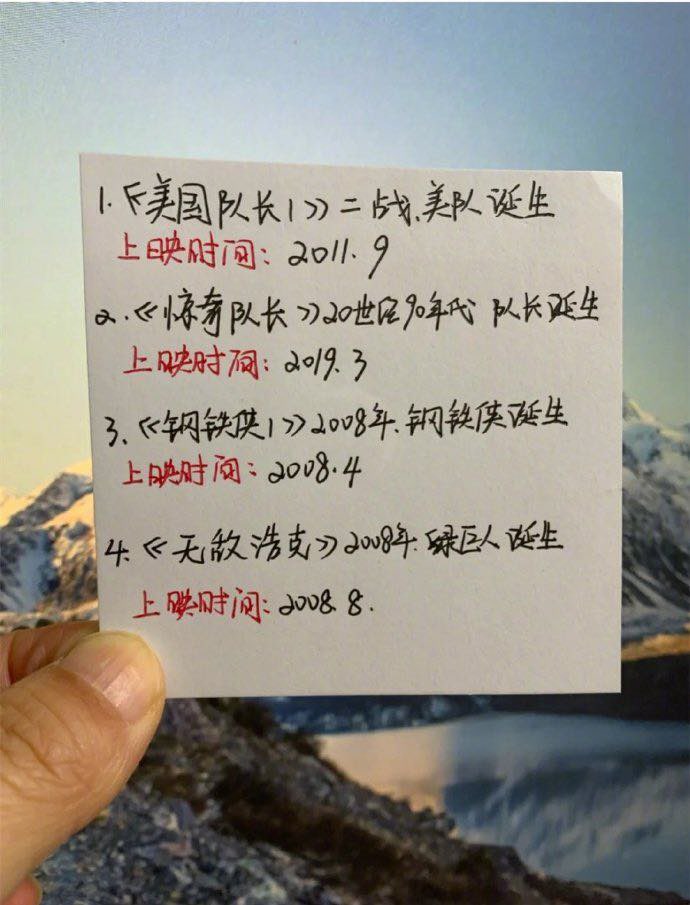 1.《美国队长1》二战.美队诞生
上映时间：2011.9
2.《惊奇队长》20世纪90年代 队长诞生
上映时间：2019.3
3.《钢铁侠1》2008年.钢铁侠诞生
上映时间：2008.4
4.《无敌浩克》2008年.绿巨人诞生
上映时间：2008.8.